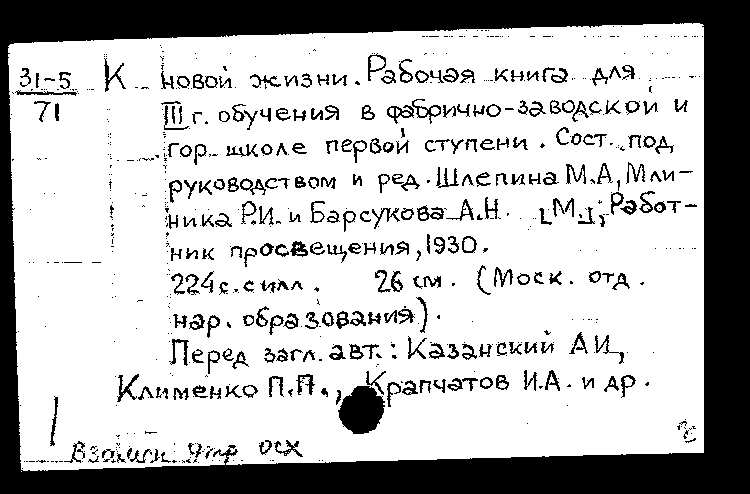 31-5 К новой жизни. Рабочая книга для
71 III г. обучения в фабрично-заводской и
гор. школе первой ступени. Сост. под
руководством и ред. Шлепина М.А, Мли-
ника Р.И. и Барсукова А.Н. [М.]; Работ-
ник просвещения, 1930.
224 с. с илл. 26 см. (Моск. отд.
нар. образования).
Перед загл. авт.: Казанский А.И,
Клименко П.П., Крапчатов И.А. и др.